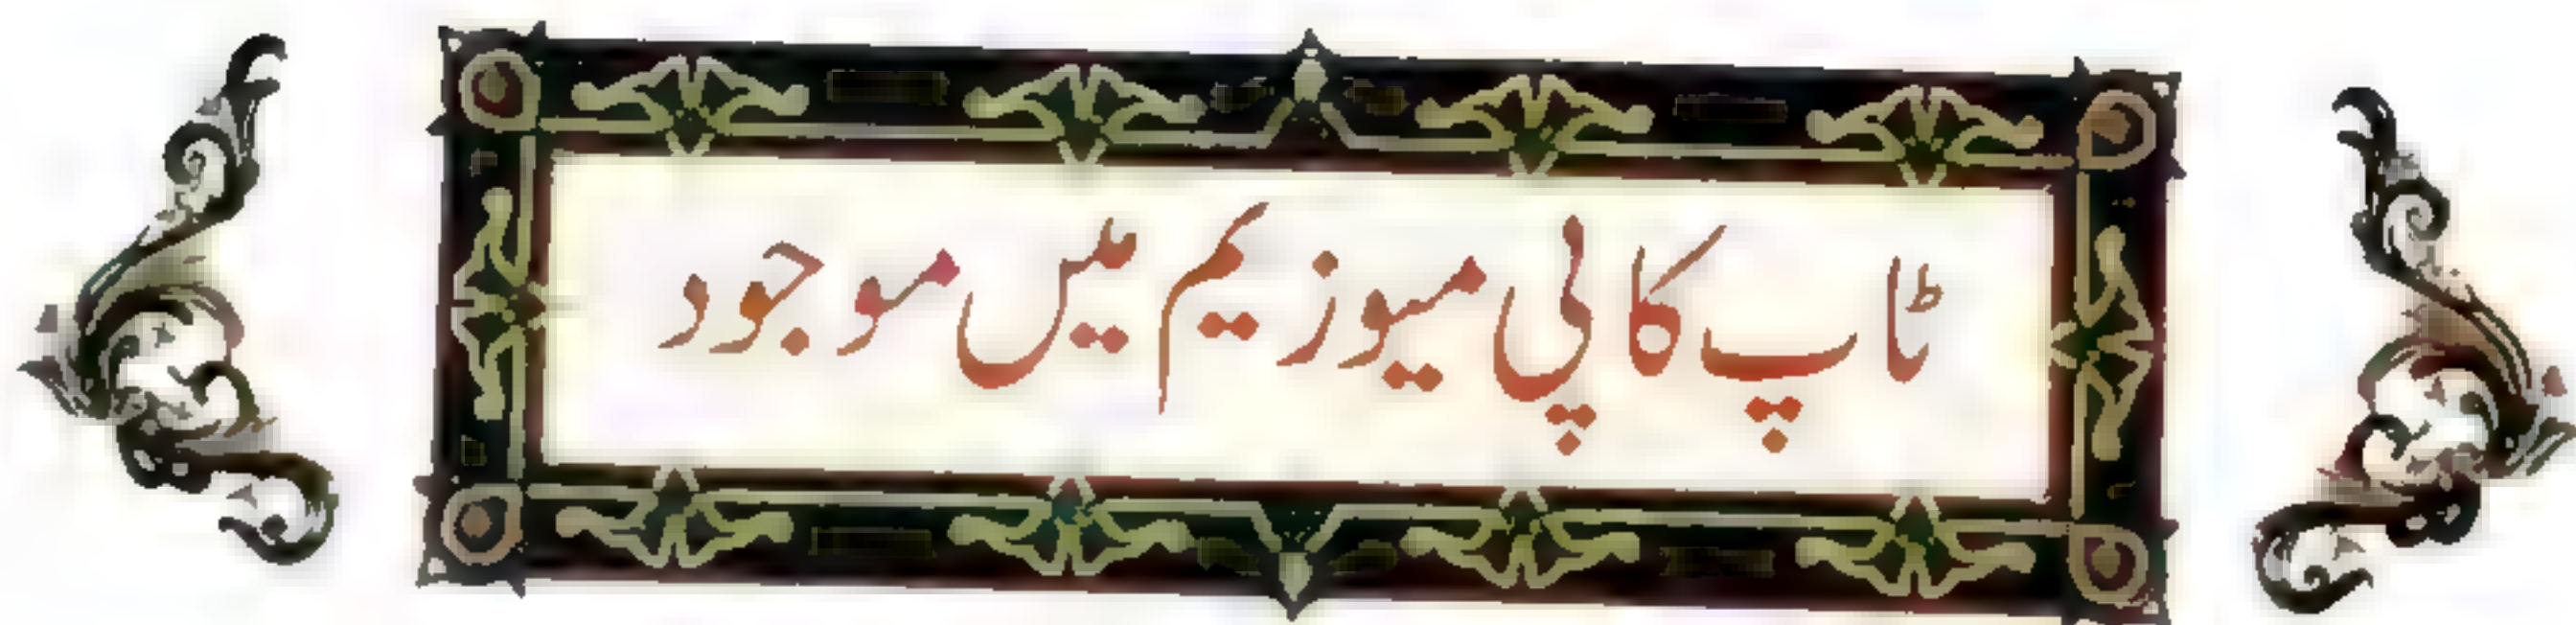 ٹاپ کاپی میوزیم میں موجود